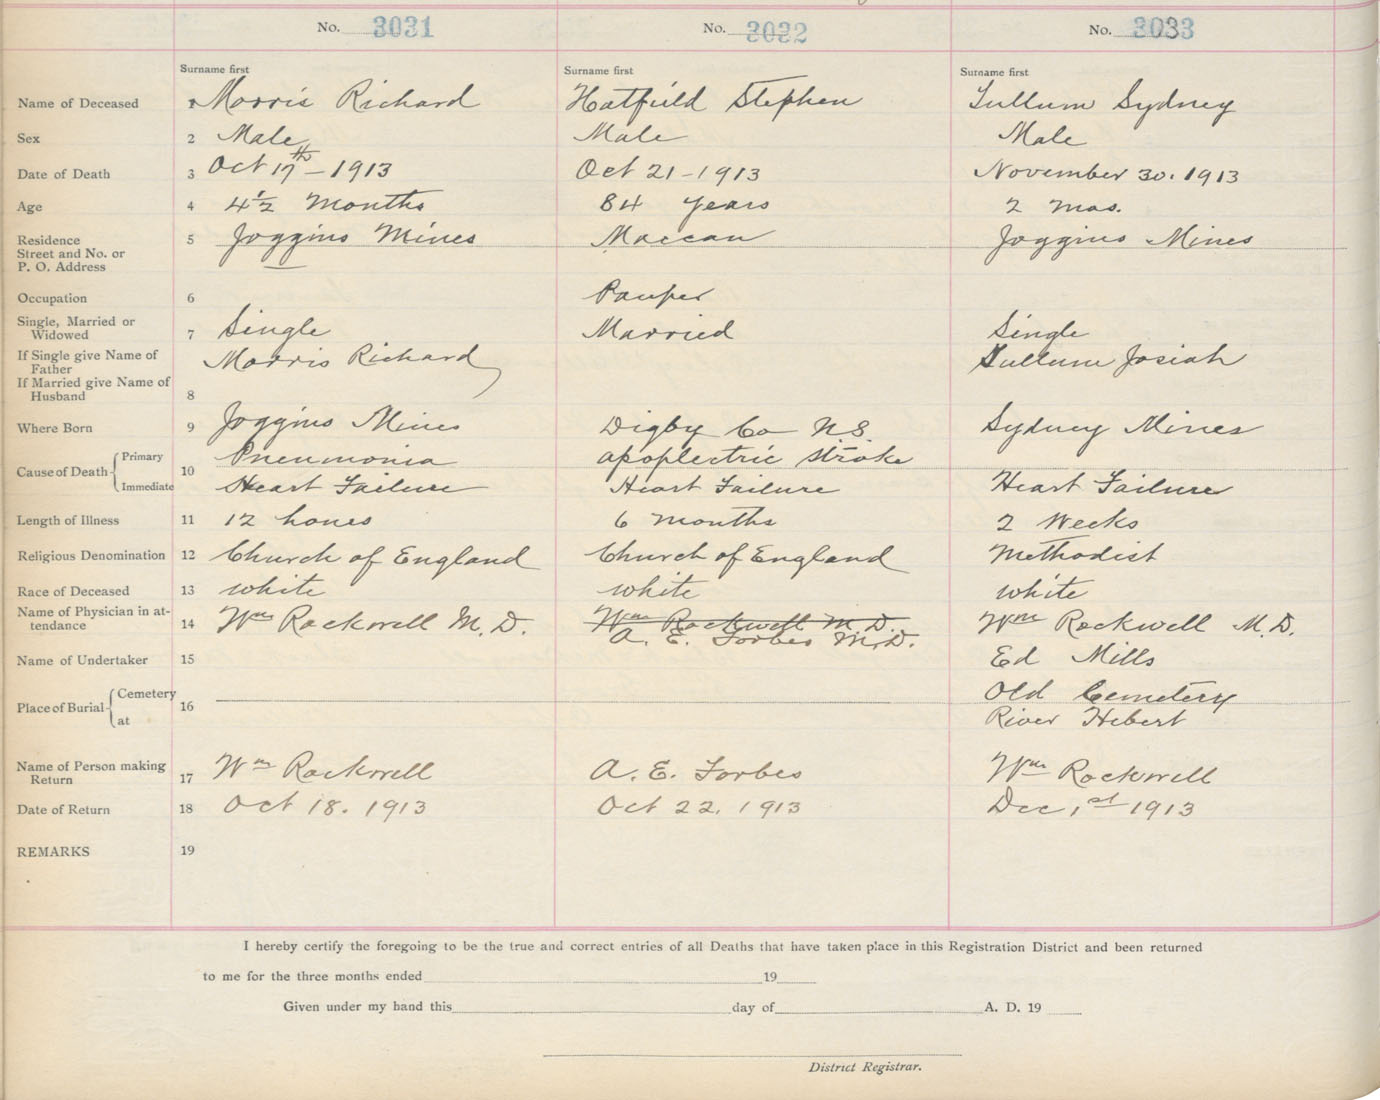 No. 3031 No. 3032 No. 3033
Surname first Surname first Surname first
Name of Deceased 1 Morris Richard Hatfield Stephen Sullum Sydney
Sex 2 Male Male Male
Date of Death 3 Oct 17th - 1913 Oct 21 - 1913 November 30. 1913
Age 4 4½ Months 84 Years 2 Mos.
Residence 5 Joggins Mines Maccan Joggins Mines
Street and No. or
P. O. Address
Occupation 6 Pauper
Single, Married or
Widowed 7 Single Married Single
If Single give Name of
Father Morris Richard Sullum Josiah
If Married give Name of
Husband 8
Where Born 9 Joggins Mines Digby Co N.S. Sydney Mines
Cause of Death Primary 10 Pneumonia apoplectric stroke
Immediate Heart Failure Heart Failure Heart Failure
Length of Illness 11 12 houes 6 months 2 Weeks
Religious Denomination 12 Church of England Church of England Methodist
Race of Deceased 13 white white white
Name of Physician in at-
tendance 14 Wm Rockwell M.D. Wm Rockwell M.D. Wm Rockwell M.D.
A. E. Forbes M.D.
Name of Undertaker 15 Ed Mills
Place of Burial Cemetery 16 Old Cemetery
at River Hebert
Name of Person making
Return 17 Wm Rockwell A. E. Forbes Wm Rockwell
Date of Return 18 Oct 18. 1913 Oct 22, 1913 Dec 1st 1913
REMARKS 19
I hereby certify the foregoing to be the true and correct entries of all Deaths that have taken place in this Registration District and been returned
to me for the three months ended 19
Given under my hand this day of A. D. 19
District Registrar.